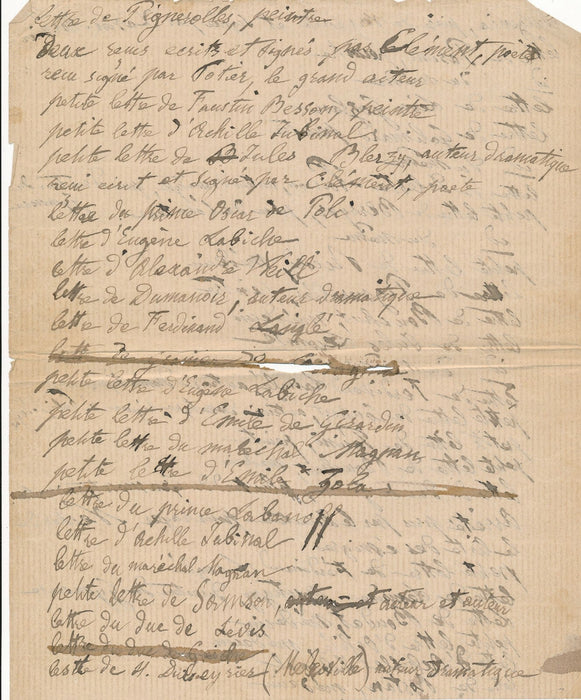 lettre de Pignerolles, peintre
deux reçus ecrits et signés par Clément, poëte
reçu signé par Potier, le grand acteur
petite lettre de Faustin Besson peintre
petite lettre d'Achille Jubinal
petite lettre de Jules Blerzy, auteur dramatique
reçu ecrit et signé par Clément, poëte
lettre du prince Oscar de Poli
lettre d'Eugène Labiche
lettre d'Alexandre Weill
lettre de Dumanoir, auteur dramatique
lettre de Ferdinand Langlé
lettre de
petite lettre d'Eugène Labiche
petite lettre d'Emile de Girardin
petite lettre du maréchal Magnan
petite lettre d'Emile Zola
lettre du prince Labanoff
lettre d'Achille Jubinal
lettre du maréchal Magnan
petite lettre de Samson, et acteur et auteur
lettre du duc de Lévis
lettre du duc de
lettre de H. Duveyrier (Mélesville) auteur dramatique